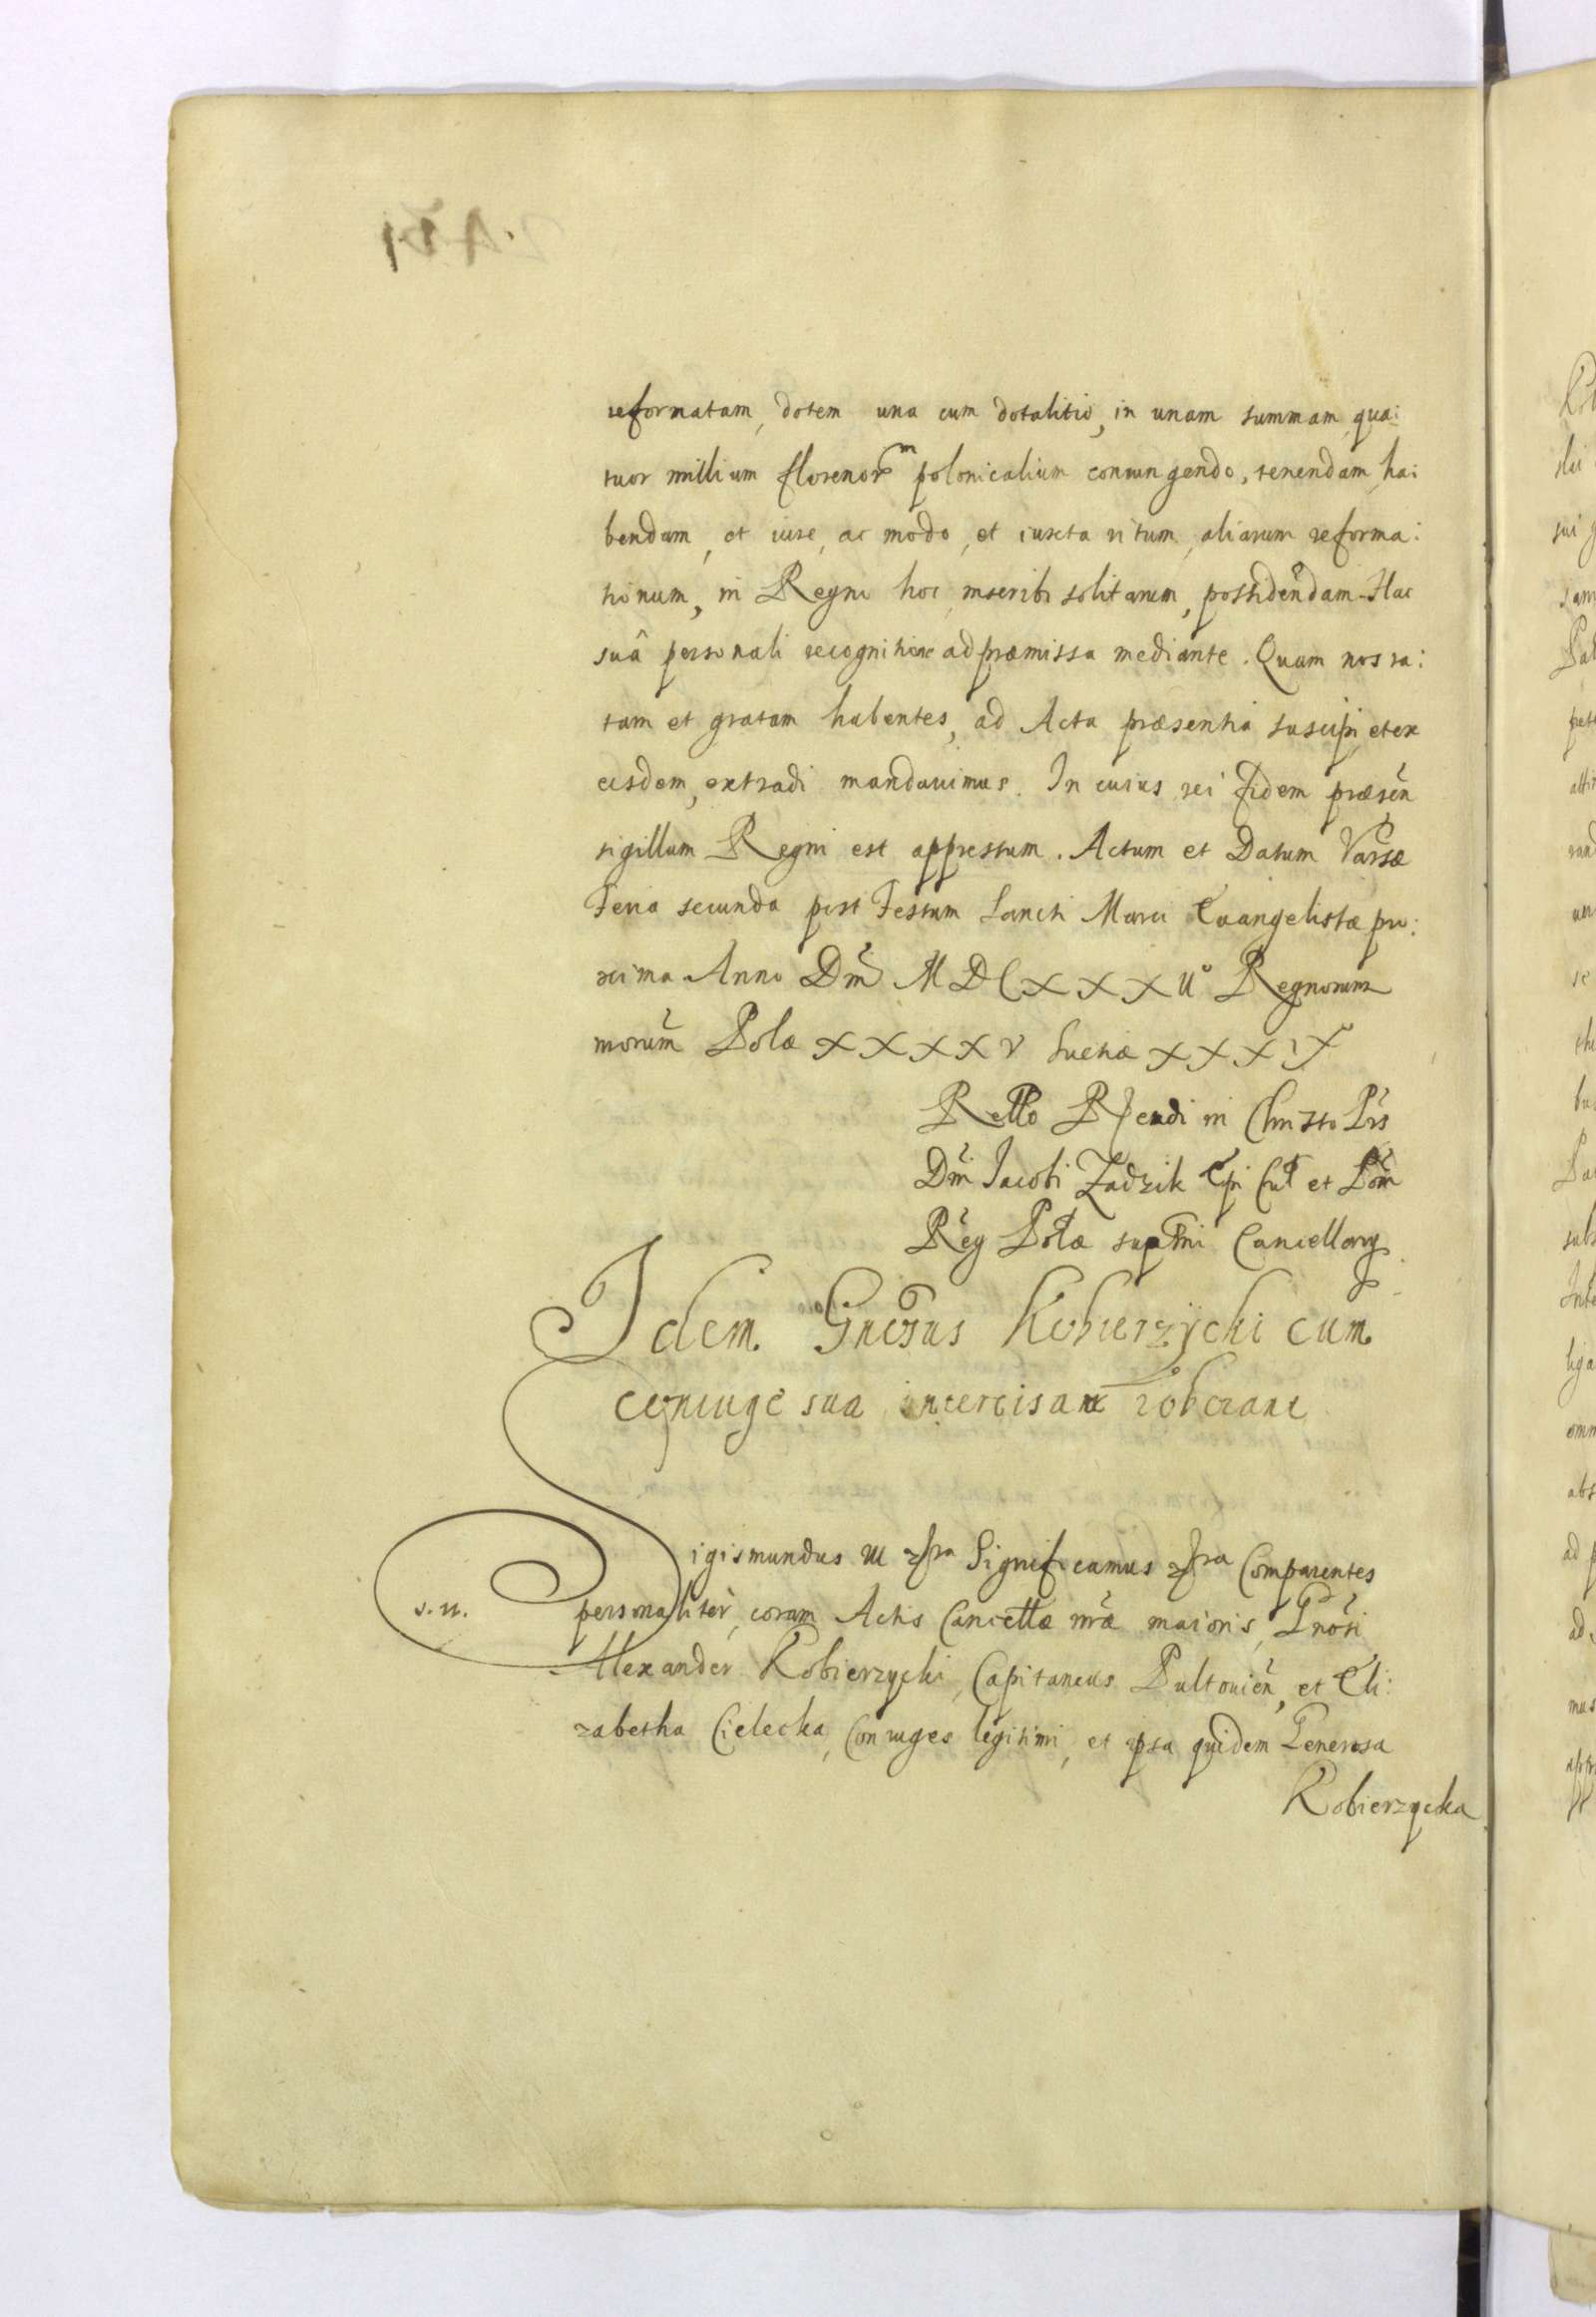 reformatam, dotem una cum dotalitio, in unam summam, qua:
tuor millium florenorm polonicalium coniungendo, tenendam, ha:
bendam, et iure, ac modo, et iuxta ritum, aliarum reforma:
tionum, in Regno hoc inscribi solitarum, possidendam. Hac
suâ personali recognitione ad præmissa mediante. Quam nos ra:
tam et gratam habentes, ad Acta præsentia suscipi, et ex
eisdem, extradi mandauimus. In cuius rei fidem præsen
sigillum Regni est appressum. Actum et Datum Varsæ
Feria secunda post Festum Sancti Marci Euangelistæ pro:
xima Anno Dm MDCXXXIIo Regnorum
nrorum Polæ XXXXV Suetiæ XXXIX
Rello Rendi in Christo Pris
Dm Iacobi Zadzik Epi Cul et Pom
Reg Polæ supmi Cancellary
Idem Gnosus Kobierzÿcki cum
coniuge sua intercisam roborant
Sigismundus III &ra Significamus &ra Comparentes
s. n.
personaliter, coram Actis Cancellæ nræ maioris, Gnosi
Alexander Kobierzycki, Capitaneus Pultouien, et Eli:
zabetha Cielecka, Coniuges legitimi, et ipsa quidem Generosa
Kobierzycka